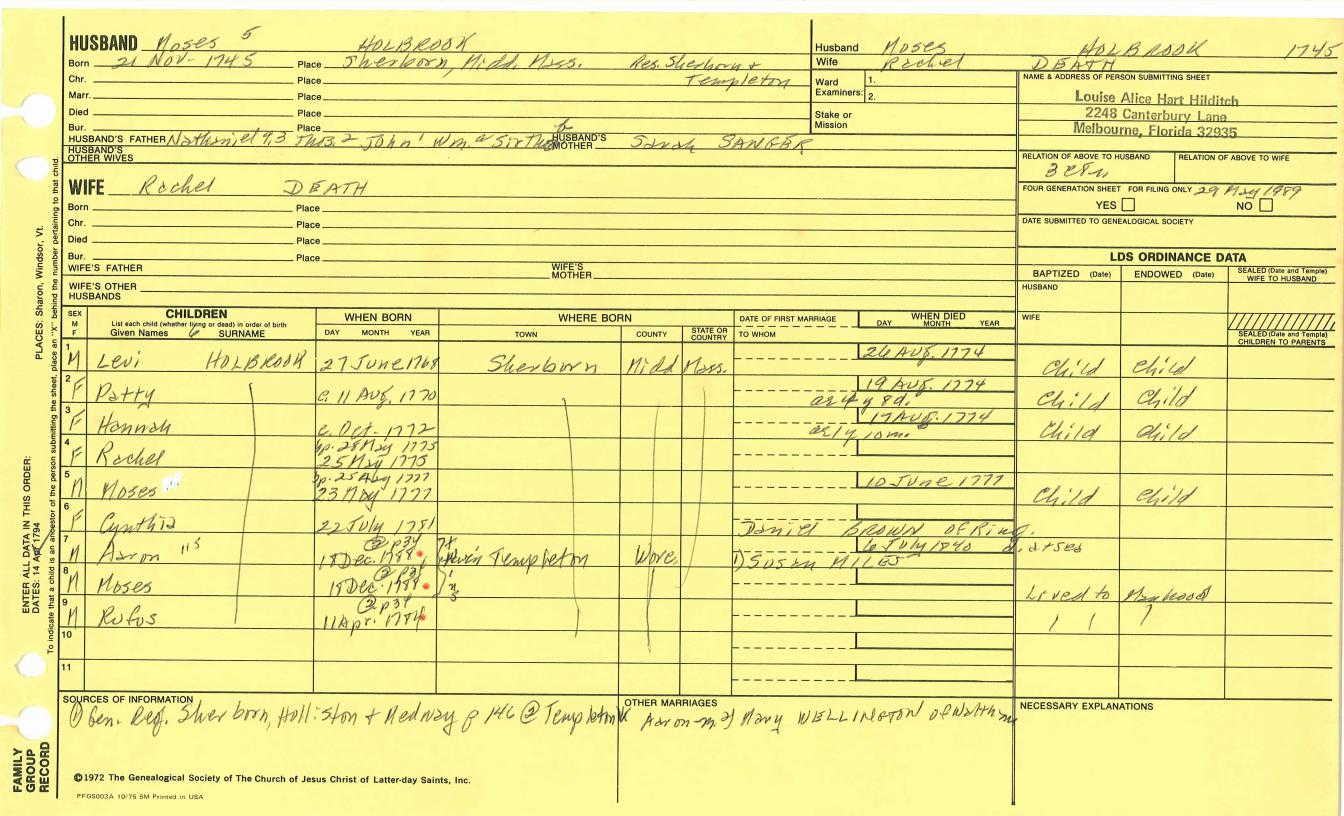 HUSBAND Moses 5 HOLBROOK
Born 21 Nov- 1745 Place Sherborn, Midd. Mass. Res. Sherborn +
Chr. Place Templeton
Marr. Place
Died Place
Bur. Place
HUSBAND'S FATHER Nathaniel 4,3 Thos.2 John1 Wm. & HUSBAND'S MOTHER Sarah SANGER
HUSBAND'S OTHER WIVES
Husband Moses HOLBROOK 1745
Wife Rachel DEATH
Ward Examiners: 1.
2.
Stake or Mission
NAME & ADDRESS OF PERSON SUBMITTING SHEET
Louise Alice Hart Hilditch
2248 Canterbury Lane
Melbourne, Florida 32935
RELATION OF ABOVE TO HUSBAND RELATION OF ABOVE TO WIFE
FOUR GENERATION SHEET FOR FILING ONLY 29 May 1989
YES NO
DATE SUBMITTED TO GENEALOGICAL SOCIETY
WIFE Rachel DEATH
Born Place
Chr. Place
Died Place
Bur. Place
WIFE'S FATHER WIFE'S MOTHER
WIFE'S OTHER HUSBANDS
LDS ORDINANCE DATA
BAPTIZED (Date) ENDOWED (Date) SEALED (Date and Temple) WIFE TO HUSBAND
HUSBAND
WIFE
SEALED (Date and Temple) CHILDREN TO PARENTS
SEX M F
CHILDREN
List each child (whether living or dead) in order of birth
Given Names 6 SURNAME
WHEN BORN
DAY MONTH YEAR
WHERE BORN
TOWN COUNTY STATE OR COUNTRY
DATE OF FIRST MARRIAGE
TO WHOM
WHEN DIED
DAY MONTH YEAR
1 26 Aug. 1774
M Levi HOLBROOK 27 June 1768 Sherborn Midd Mass. Child Child
2 19 Aug. 1774
F Patty c. 11 Aug. 1770 Child Child
3 17 Aug. 1774
F Hannah c. Oct. 1772 Child Child
4 bp. 28 May 1775
F Rachel 25 May 1775
5 bp. 25 Aug 1777 10 June 1777
M Moses 23 May 1777 Child Child
6
F Cynthia 22 July 1781 Daniel BROWN of
7 ② p34 6 July 1840
M Aaron 18 Dec. 1788 Templeton Worc. 1) Susan MILES
8 ② p34
M Moses 18 Dec. 1788 Lived to Manhood
9 ② p34
M Rufus 11 Apr. 1784
10
11
SOURCES OF INFORMATION
① Gen. Reg. Sherborn, Holliston + Medway p 146 ② Templeton
OTHER MARRIAGES
Aaron m 2) Mary WELLINGTON of
NECESSARY EXPLANATIONS
©1972 The Genealogical Society of The Church of Jesus Christ of Latter-day Saints, Inc.
PFGS003A 10/75 5M Printed in USA
FAMILY GROUP RECORD
ENTER ALL DATA IN THIS ORDER:
DATES: 14 Apr 1794
PLACES: Sharon, Windsor, Vt.
To indicate that a child is an ancestor of the person submitting the sheet, place an "X" behind the number pertaining to that child.